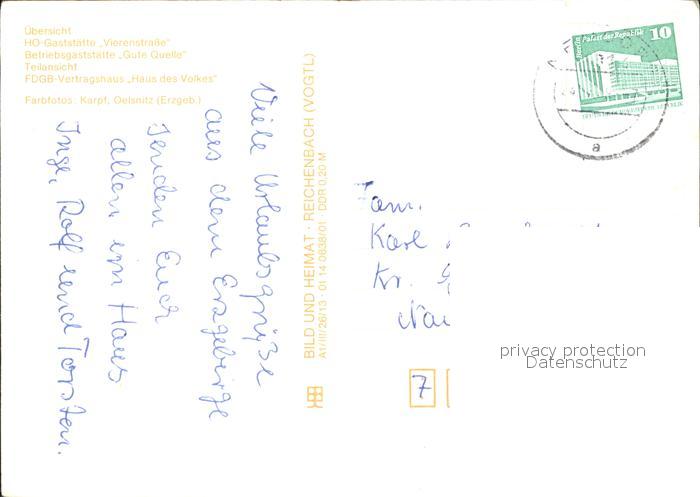 Übersicht
HO-Gaststätte „Vierenstraße"
Betriebsgaststätte „Gute Quelle"
Teilansicht
FDGB-Vertragshaus „Haus des Volkes"
Farbfotos: Karpf, Oelsnitz (Erzgeb.)
Viele Urlaubsgrüße
aus dem Erzgebirge
senden Euch
allen im Haus
Inge, Rolf und Torsten.
BILD UND HEIMAT · REICHENBACH (VOGTL)
A1/III/26/13 · 01 14 0638/01 · DDR 0,20 M
Berlin Palast der Republik
10
a
Fam.
Karl
Kr.
7
privacy protection
Datenschutz